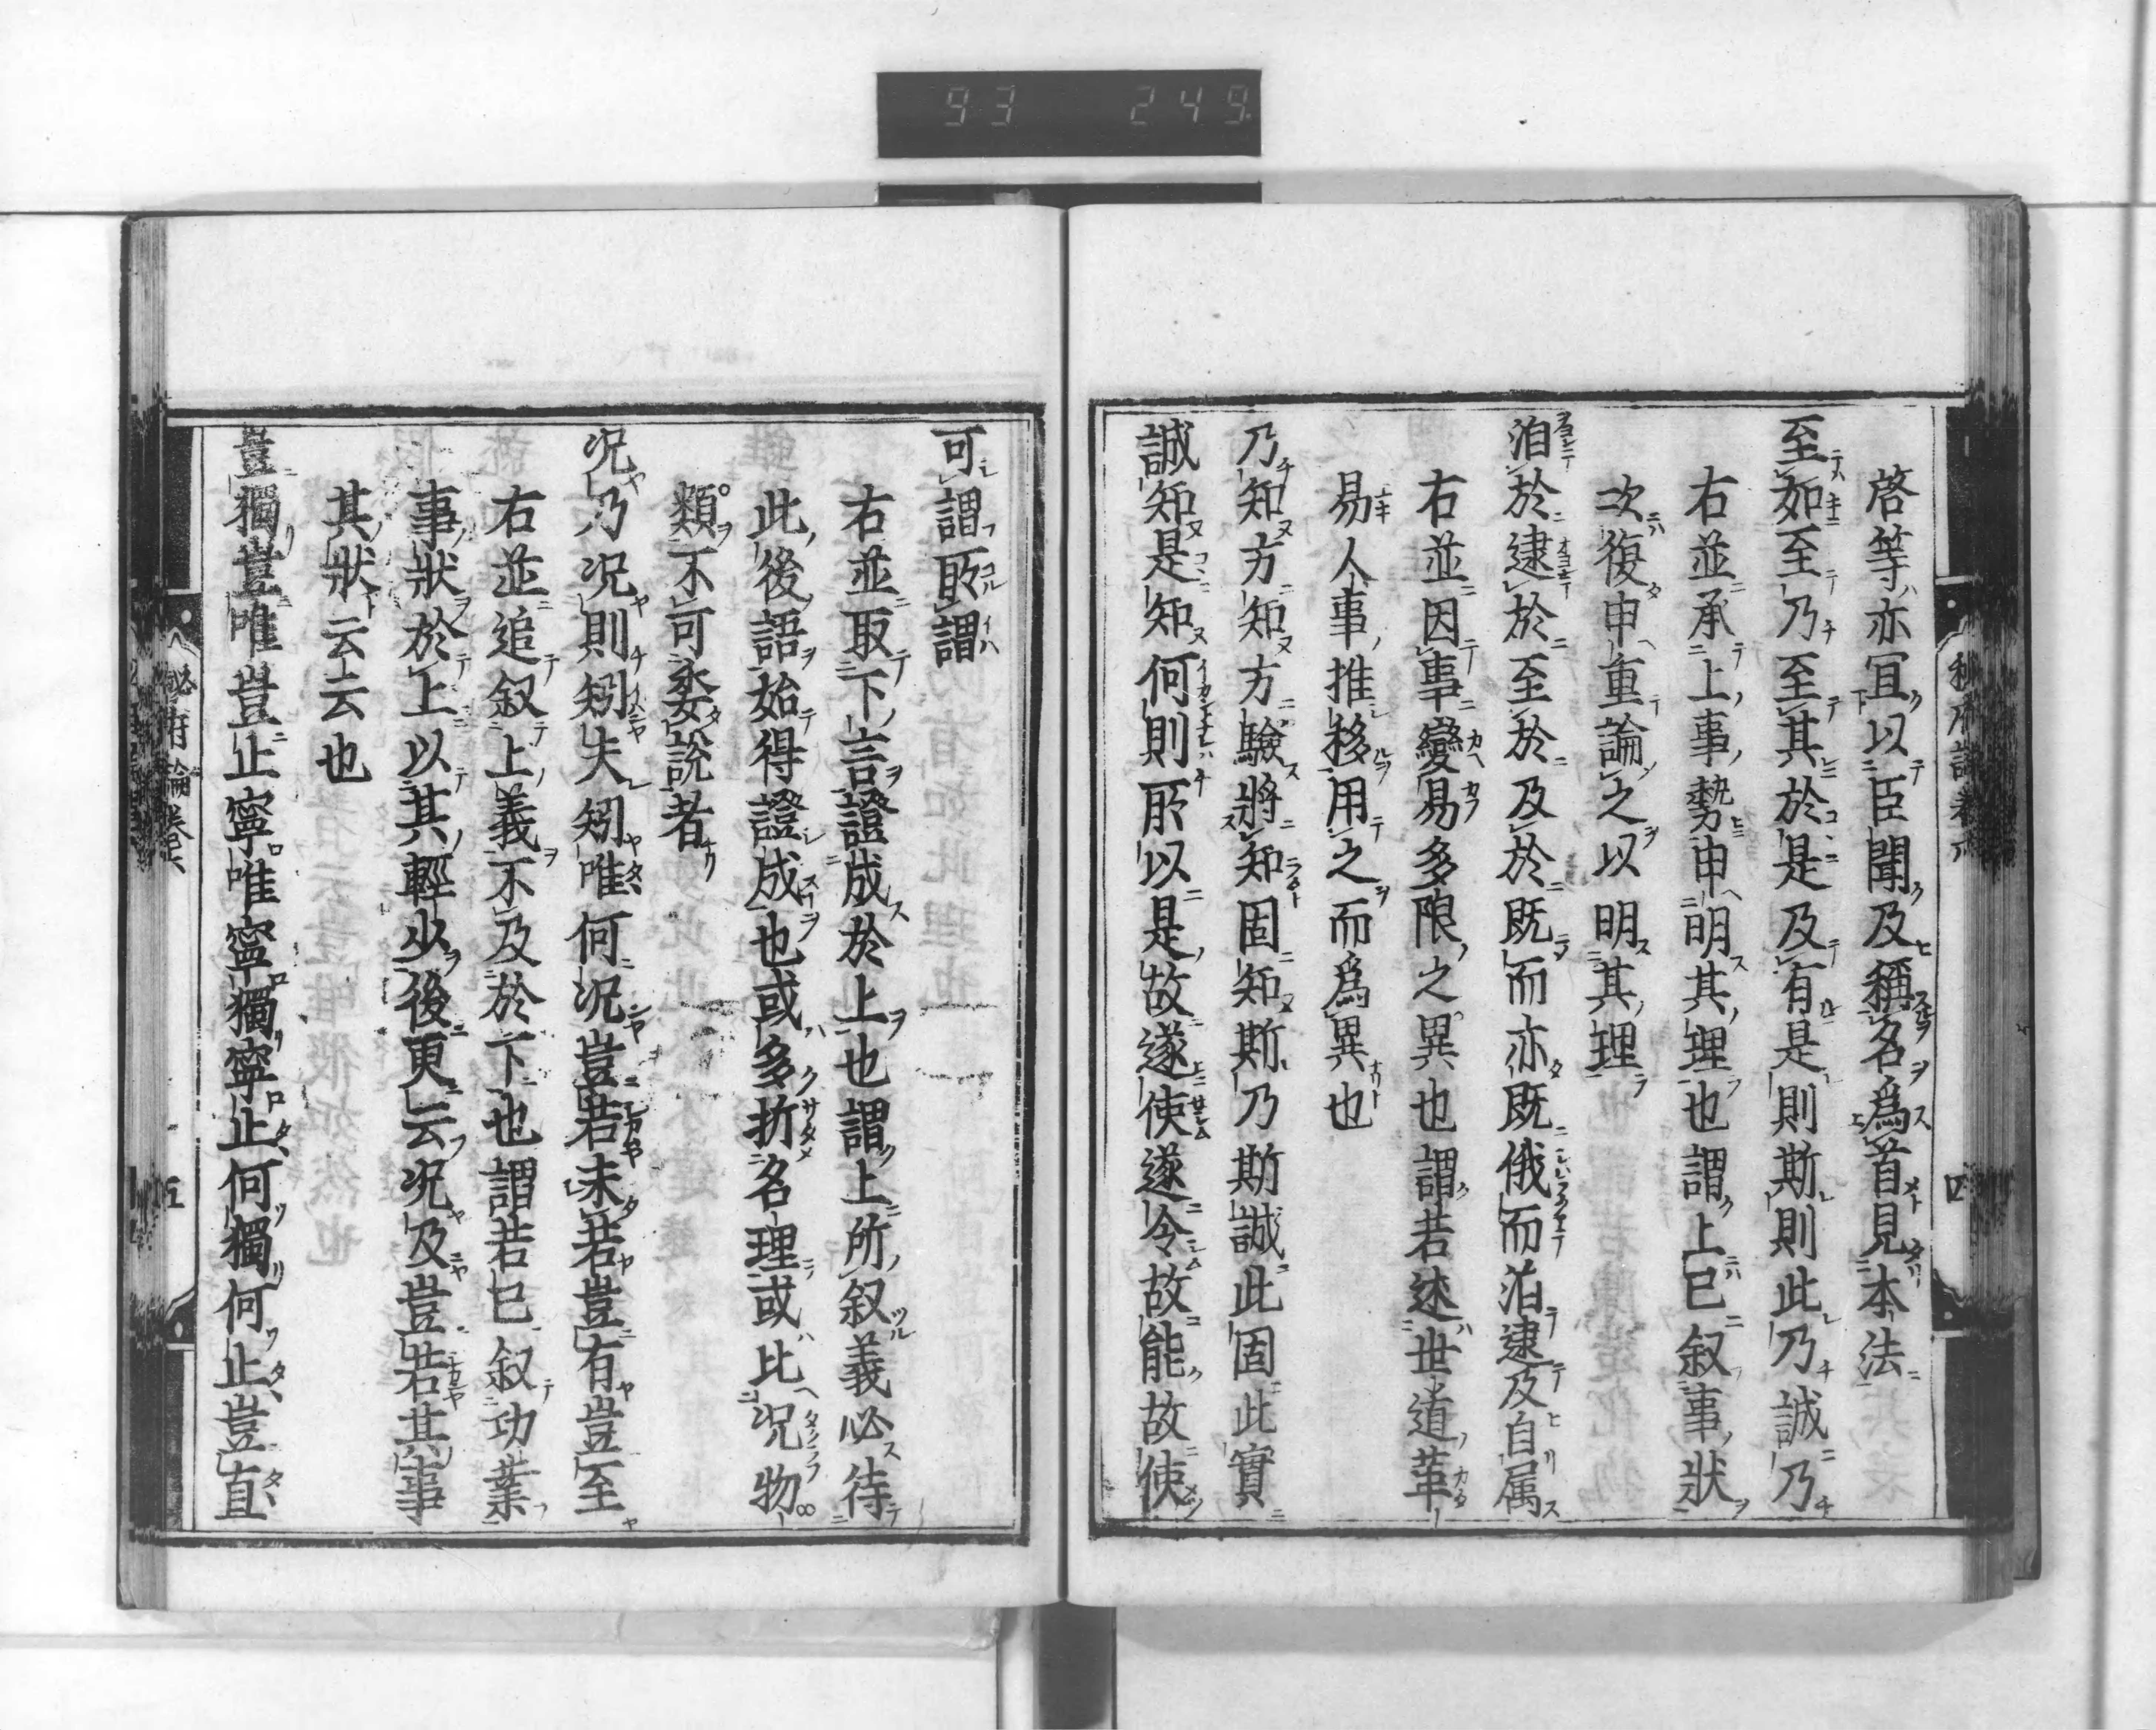 93 249
啓等亦冝以臣聞及稱名爲首見本法
至如至乃至其於是及有是則斯則此乃誠乃
右並承上事勢申明其理也謂上已叙事狀
次復申重論之以明其理
洎於逮於至於及於既而亦既俄而洎逮及自属
右並因事變易多限之異也謂若述世道革
易人事推移用之而爲異也
乃知方知方驗將知固知斯乃斯誠此固此實
誠知是知何則所以是故遂使遂令故能故使
可謂所謂
右並取下言證成於上也謂上所叙義必待
此後語始得證成也或多析名理或比況物
類不可委說者
況乃況則矧夫矧唯何況豈若未若豈有豈至
右並追叙上義不及於下也謂若已叙功業
事狀於上以其輕少後更云況及豈若其事
其狀云云也
豈獨豈唯豈止寧唯寧獨寧止何獨何止豈直
秘府論卷六
四
秘府論卷六
五